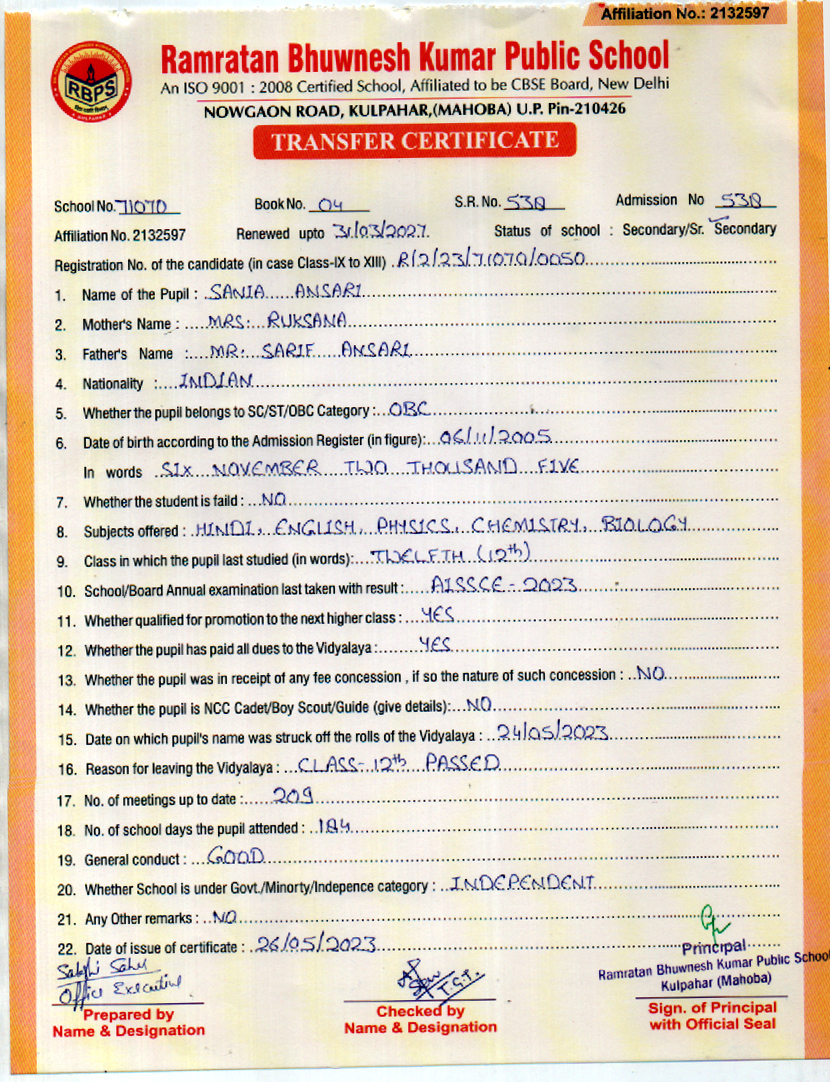 Affiliation No.: 2132597
Ramratan Bhuwnesh Kumar Public School
RBPS
An ISO 9001 : 2008 Certified School, Affiliated to be CBSE Board, New Delhi
NOWGAON ROAD, KULPAHAR,(MAHOBA) U.P. Pin-210426
TRANSFER CERTIFICATE
School No. 71070 Book No. 04 S.R. No. 538 Admission No 538
Affiliation No. 2132597 Renewed upto 31/03/2027 Status of school : Secondary/Sr. Secondary
Registration No. of the candidate (in case Class-IX to XIII) R/2/23/71070/0050
1. Name of the Pupil : SANIA ANSARI
2. Mother's Name : MRS. RUKSANA
3. Father's Name : MR. SARIF ANSARI
4. Nationality : INDIAN
5. Whether the pupil belongs to SC/ST/OBC Category : OBC
6. Date of birth according to the Admission Register (in figure): 06/11/2005
In words SIX NOVEMBER TWO THOUSAND FIVE
7. Whether the student is faild : NO
8. Subjects offered : HINDI, ENGLISH, PHYSICS, CHEMISTRY, BIOLOGY
9. Class in which the pupil last studied (in words): TWELFTH (12th)
10. School/Board Annual examination last taken with result : AISSCE - 2023
11. Whether qualified for promotion to the next higher class : YES
12. Whether the pupil has paid all dues to the Vidyalaya : YES
13. Whether the pupil was in receipt of any fee concession , if so the nature of such concession : NO
14. Whether the pupil is NCC Cadet/Boy Scout/Guide (give details): NO
15. Date on which pupil's name was struck off the rolls of the Vidyalaya : 24/05/2023
16. Reason for leaving the Vidyalaya : CLASS-12th PASSED
17. No. of meetings up to date : 209
18. No. of school days the pupil attended : 184
19. General conduct : GOOD
20. Whether School is under Govt./Minorty/Indepence category : INDEPENDENT
21. Any Other remarks : NO
22. Date of issue of certificate : 26/05/2023
Office Executive
T.G.T.
Principal
Ramratan Bhuwnesh Kumar Public School
Kulpahar (Mahoba)
Prepared by
Name & Designation
Checked by
Name & Designation
Sign. of Principal
with Official Seal